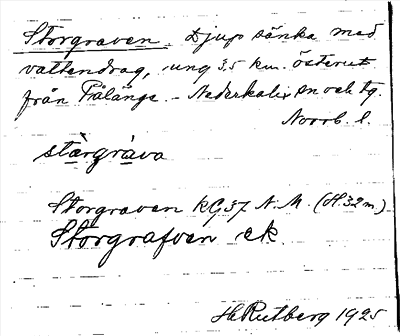 Storgraven. Djup sänka med
vattendrag, ung 3.5 km. österut
från Pålänge. - Nederkalix sn och tg.
Norrb. l.
stårgràva
Storgraven kG 37 N.M. (H.32m.)
Storgrafven ek.
H Rutberg 1925